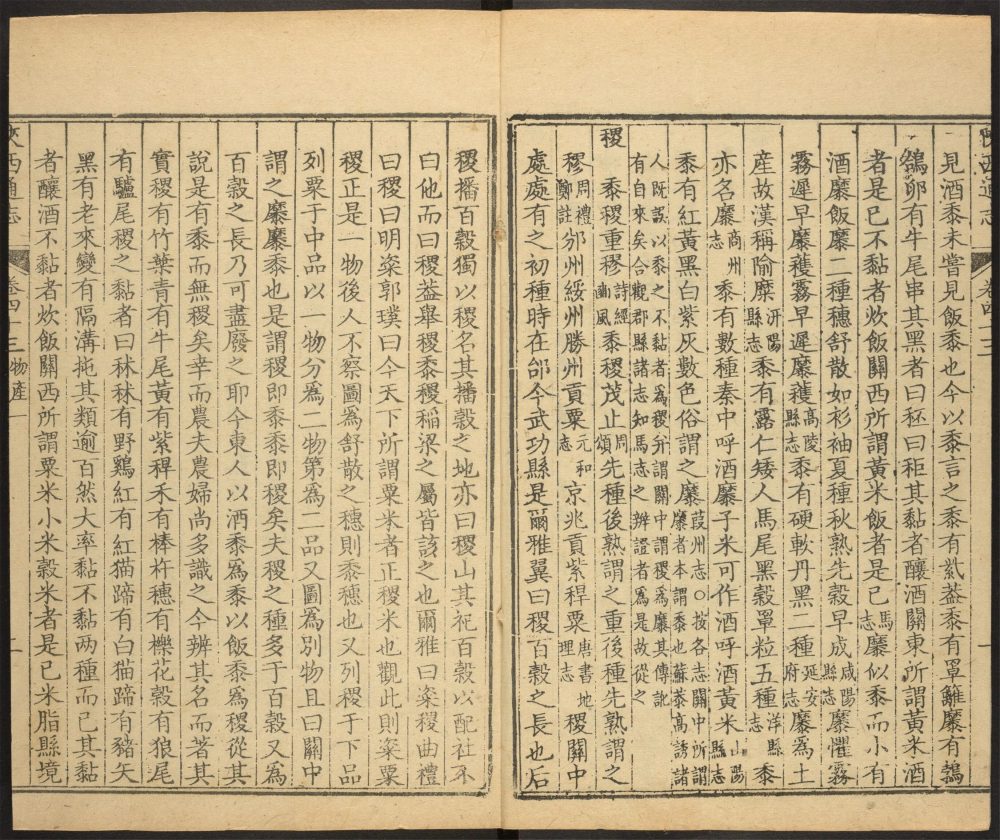 陝西通志 卷四十三 一
見酒黍未嘗見飯黍也今以黍言之黍有紙葢黍有罩雞黍有鵓
鴿卵有牛尾串其黑者曰秠曰秬其黏者釀酒關東所謂黃米酒
者是已不黏者炊飯關西所謂黃米飯者是已馬志穈似黍而小有
酒穈飯穈二種穗舒散如衫袖夏種秋熟先穀早成咸陽縣志穈懼霧
霧遲早穈穫霧早遲穈穫高陵縣志黍有硬軟丹黑二種延安府志穈為土
產故漢稱隃糜汧陽縣志黍有露仁矮人馬尾黑穀單粒五種洋縣志黍
亦名穈商州志黍有數種秦中呼酒穈子米可作酒呼酒黃米山陽縣志
黍有紅黃黑白紫灰數色俗謂之穈葭州志○按各志關中所謂穈者本謂黍也蘇恭高誘諸
人既誤以黍之不黏者爲稷并謂關中謂稷爲穈其傳訛有自來矣合觀郡縣諸志知馬志之辨證者爲是故從之
稷 黍稷重穋詩經豳風黍稷茂止周頌先種後熟謂之重後種先熟謂之
穋周禮鄭註邠州綏州勝州貢粟元和志京兆貢紫稈粟唐書地理志稷關中
處處有之初種時在邰今武功縣是爾雅翼曰稷百穀之長也后
稷播百穀獨以稷名其播穀之地亦曰稷山其祀百穀以配社不
曰他而曰稷葢舉稷黍稷稻梁之屬皆該之也爾雅曰粢稷曲禮
曰稷曰明粢郭璞曰今天下所謂粟米者正稷米也觀此則粢粟
稷正是一物後人不察圖爲舒散之穗則黍穗也又列稷于下品
列粟于中品以一物分爲二物第爲二品又圖爲別物且曰關中
謂之穈穈黍也是謂稷即黍黍即稷矣夫稷之種多于百穀又爲
百穀之長乃可盡廢之耶今東人以酒黍爲黍以飯黍爲稷從其
說是有黍而無稷矣幸而農夫農婦尚多識之今辨其名而著其
實稷有竹葉青有牛尾黃有紫稈禾有棒杵穗有櫟花穀有狼尾
有驢尾稷之黏者曰秫秫有野鷄紅有紅猫蹄有白猫蹄有豬矢
黑有老來變有隔溝拖其類逾百然大率黏不黏兩種而已其黏
者釀酒不黏者炊飯關西所謂粟米小米穀米者是已米脂縣境
陝西通志 卷四十三 物產一 二